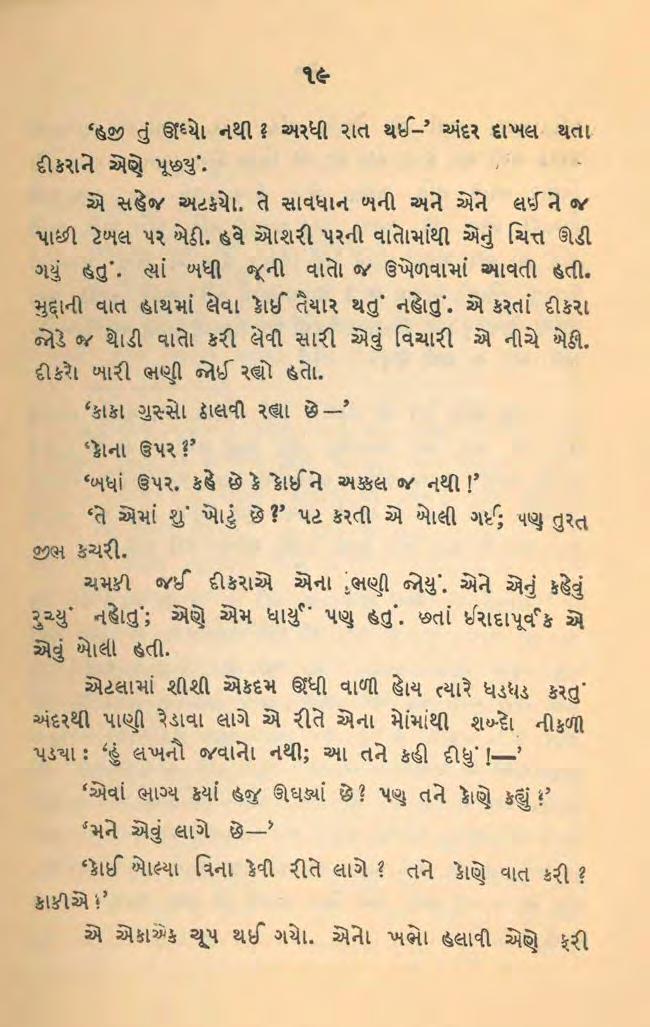 ૧૯
‘હજી તું ઊંઘ્યો નથી? અરધી રાત થઈ–’ અંદર દાખલ થતા
દીકરાને એણે પૂછ્યું.
એ સહેજ અટક્યો. તે સાવધાન બની અને એને લઈ ને જ
પાછી ટેબલ પર બેઠી. હવે ઓશરી પરની વાતોમાંથી એનું ચિત્ત ઊડી
ગયું હતું. ત્યાં બધી જૂની વાતો જ ઉખેળવામાં આવતી હતી.
મુદ્દાની વાત હાથમાં લેવા કોઈ તૈયાર થતું નહોતું. એ કરતાં દીકરા
જોડે જ થોડી વાતો કરી લેવી સારી એવું વિચારી એ નીચે બેઠી.
દીકરો બારી ભણી જોઈ રહ્યો હતો.
‘કાકા ગુસ્સો ઠાલવી રહ્યા છે—’
‘કોના ઉપર?’
‘બધાં ઉપર. કહે છે કે કોઈને અક્કલ જ નથી!’
‘તે એમાં શું ખોટું છે?’ પટ કરતી એ બોલી ગઈ; પણ તુરત
જીભ કચરી.
ચમકી જઈ દીકરાએ એના ભણી જોયું. એને એનું કહેવું
રુચ્યું નહોતું; એણે એમ ધાર્યું પણ હતું. છતાં ઈરાદાપૂર્વક એ
એવું બોલી હતી.
એટલામાં શીશી એકદમ ઊંધી વાળી હોય ત્યારે ધડધડ કરતું
અંદરથી પાણી રેડાવા લાગે એ રીતે એના મોંમાંથી શબ્દો નીકળી
પડ્યા : ‘હું લખનૌ જવાનો નથી; આ તને કહી દીધું !—’
‘એવાં ભાગ્ય ક્યાં હજુ ઊઘડ્યાં છે? પણ તને કોણે કહ્યું ?’
‘મને એવું લાગે છે—’
‘કોઈ બોલ્યા વિના કેવી રીતે લાગે ? તને કોણે વાત કરી ?
કાકીએ ?’
એ એકાએક ચૂપ થઈ ગયો. એનો ખભો હલાવી એણે ફરી